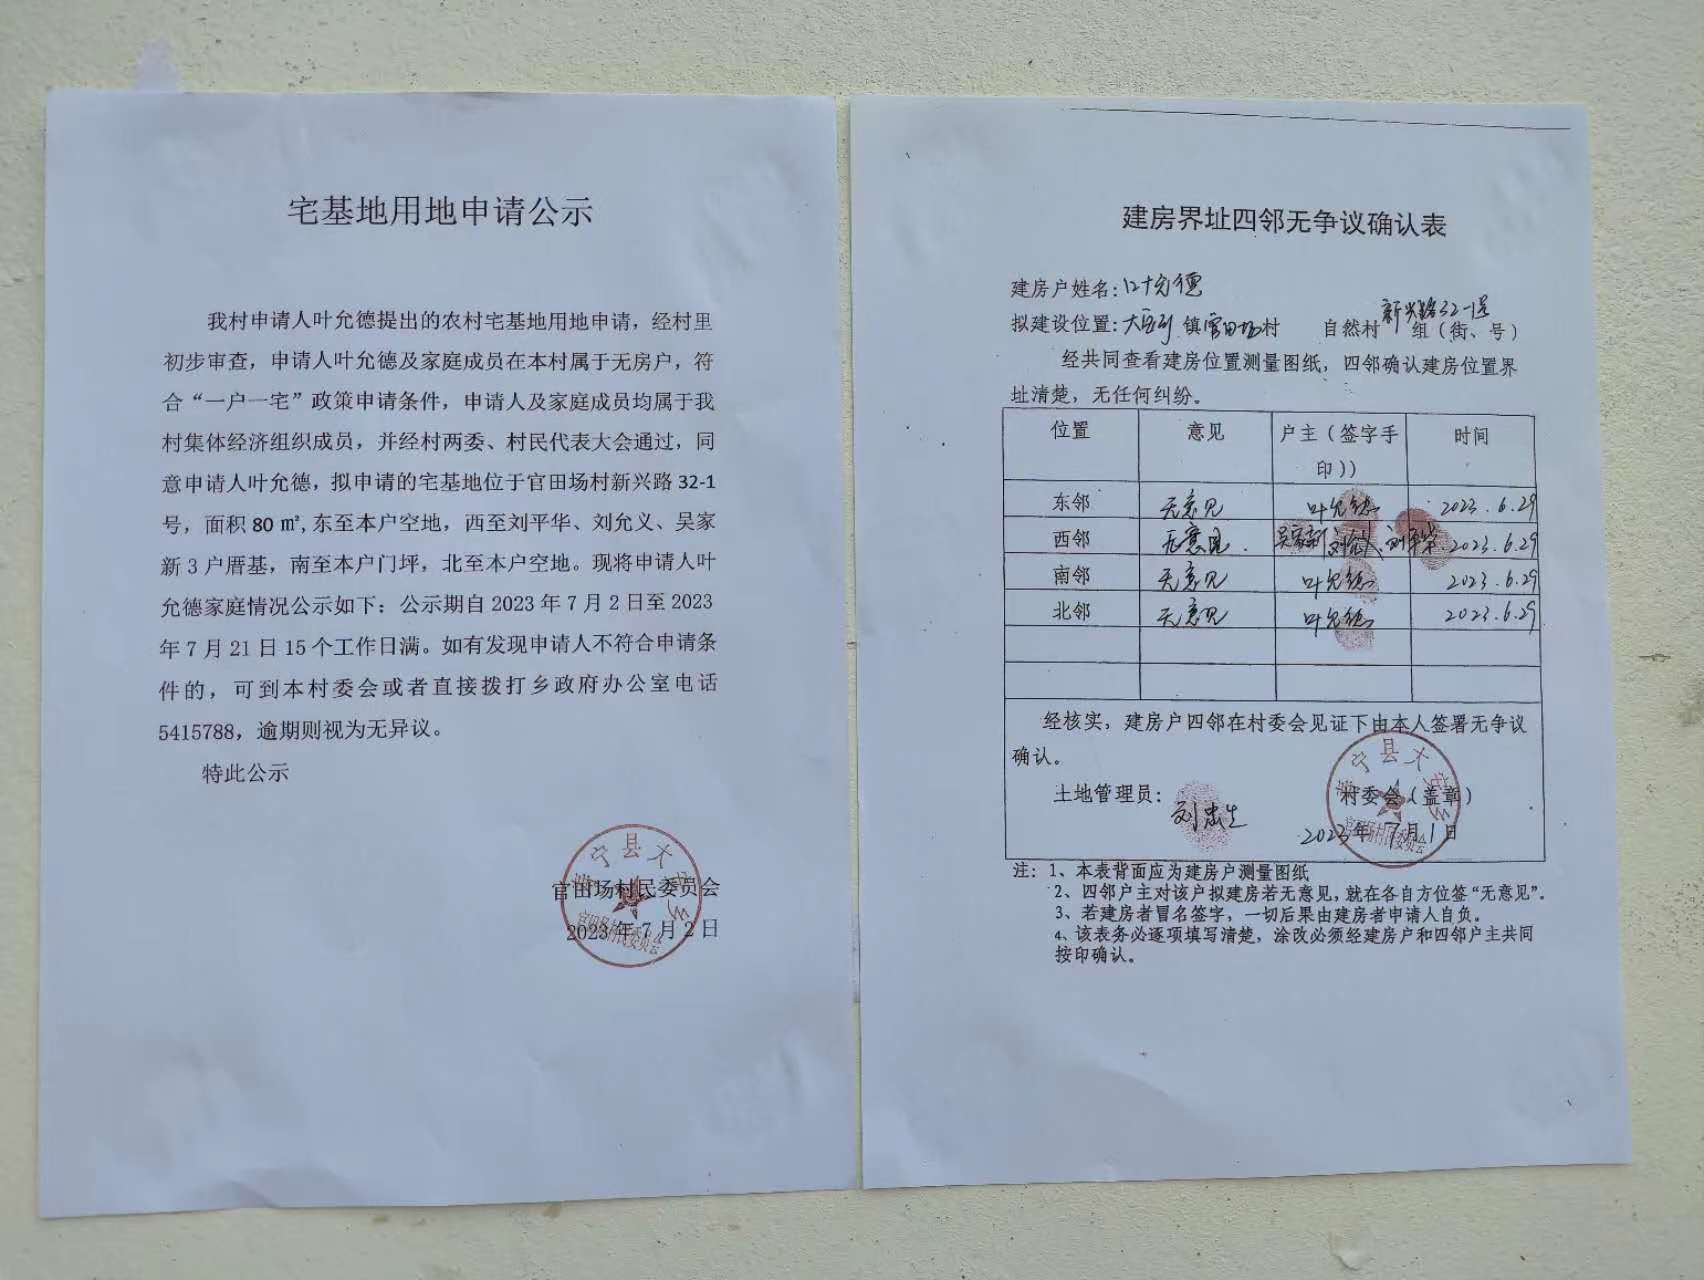 宅基地用地申请公示
我村申请人叶允德提出的农村宅基地用地申请，经村里
初步审查，申请人叶允德及家庭成员在本村属于无房户，符
合“一户一宅”政策申请条件，申请人及家庭成员均属于我
村集体经济组织成员，并经村两委、村民代表大会通过，同
意申请人叶允德，拟申请的宅基地位于官田场村新兴路 32-1
号，面积 80 ㎡,东至本户空地，西至刘平华、刘允义、吴家
新 3 户厝基，南至本户门坪，北至本户空地。现将申请人叶
允德家庭情况公示如下：公示期自 2023 年 7 月 2 日至 2023
年 7 月 21 日 15 个工作日满。如有发现申请人不符合申请条
件的，可到本村委会或者直接拨打乡政府办公室电话
5415788，逾期则视为无异议。
特此公示
官田场村民委员会
2023 年 7 月 2 日
建房界址四邻无争议确认表
建房户姓名：叶允德
拟建设位置：大安乡 镇官田场村 自然村 新兴路32-1号 组（街、号）
经共同查看建房位置测量图纸，四邻确认建房位置界
址清楚，无任何纠纷。
位置 意见 户主（签字手 时间
印））
东邻 无意见 叶允德 2023.6.29
西邻 无意见. 吴家新 刘平华 2023.6.29
南邻 无意见 叶允德 2023.6.29
北邻 无意见 叶允德 2023.6.29
经核实，建房户四邻在村委会见证下由本人签署无争议
确认。
土地管理员： 刘忠生 村委会（盖章）
2023年 7月1日
宁县大安乡
官田场村民委员会
注：1、本表背面应为建房户测量图纸
2、四邻户主对该户拟建房若无意见，就在各自方位签“无意见”。
3、若建房者冒名签字，一切后果由建房者申请人自负。
4、该表务必逐项填写清楚，涂改必须经建房户和四邻户主共同
按印确认。